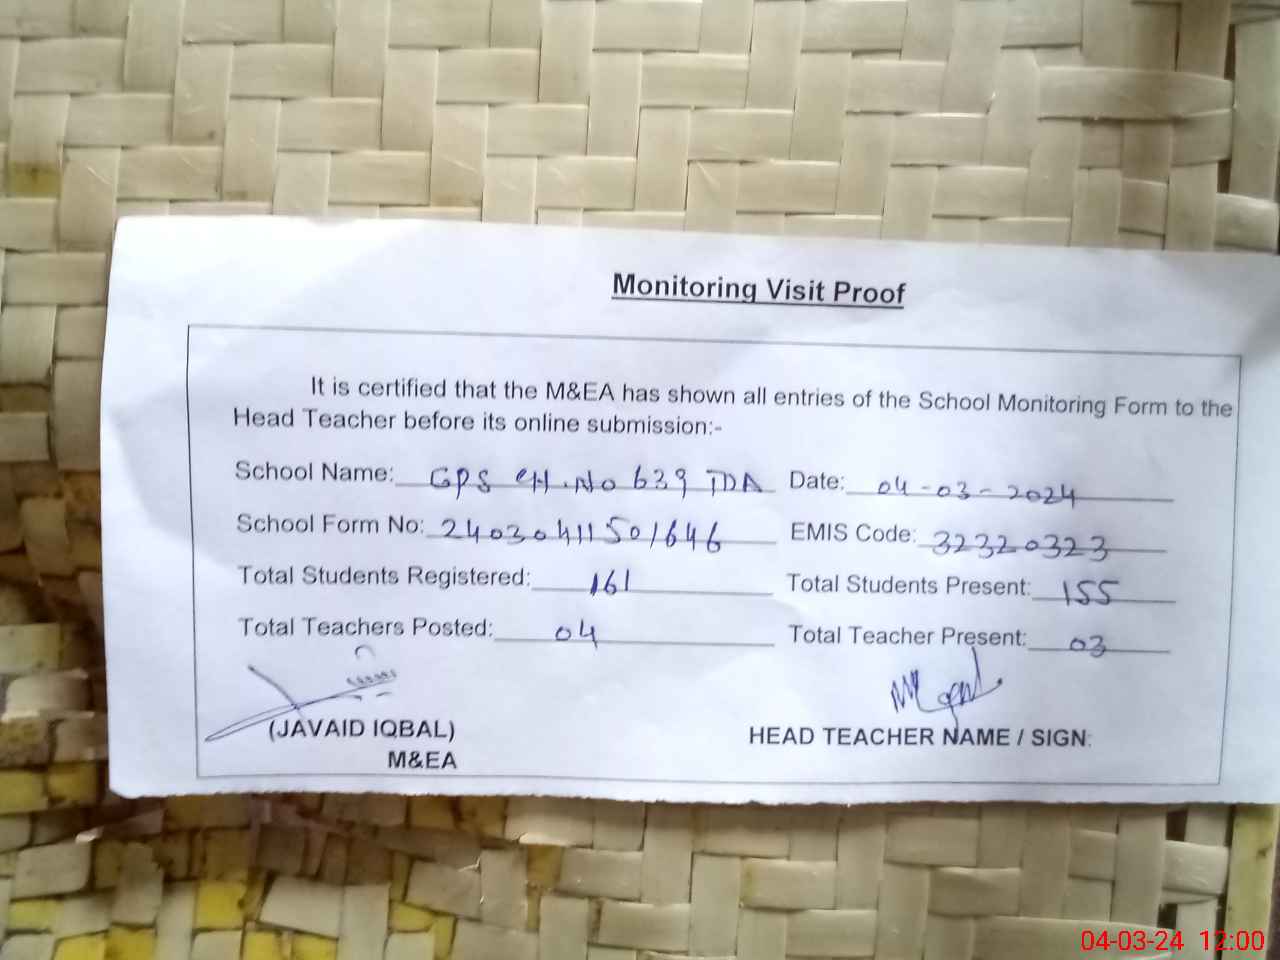 Monitoring Visit Proof
It is certified that the M&EA has shown all entries of the School Monitoring Form to the
Head Teacher before its online submission:-
School Name: GPS CH.No 639 TDA Date: 04-03-2024
School Form No: 24030411501646 EMIS Code: 32320323
Total Students Registered: 161 Total Students Present: 155
Total Teachers Posted: 04 Total Teacher Present: 03
(JAVAID IQBAL) HEAD TEACHER NAME / SIGN:
M&EA
04-03-24 12:00